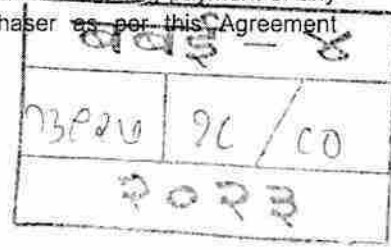 haser as per this Agreement
बबई - ४
१८ / ८०
२०२३